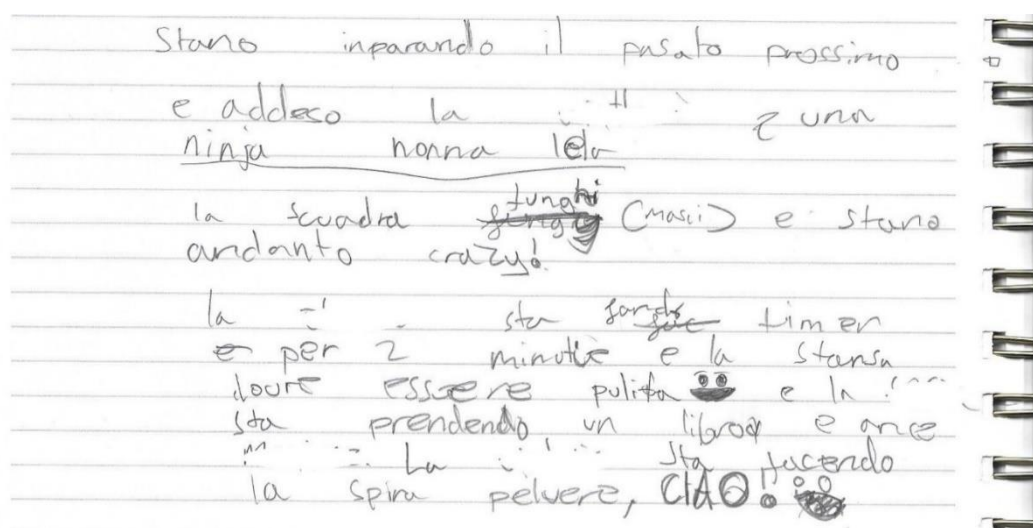 Stano inparando il pasato prossimo
e addeso la è una
ninja nonna lela
la scuadra funghi (masci) e stano
andanto crazy!
la sta fando timer
per 2 minutie e la stansa
doure esscere pulita e la
sta prendendo un libro e ance
La sta facendo
la spira pelvere, CIAO!